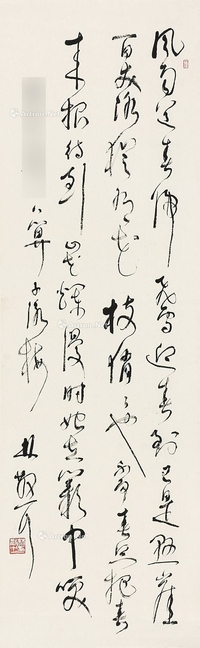 風雨送春归飛雪迎春到已是懸崖
百丈冰猶有花枝俏々也不争春只把春
来报待到山花爛漫时她在丛中笑
卜算子咏梅
林散耳